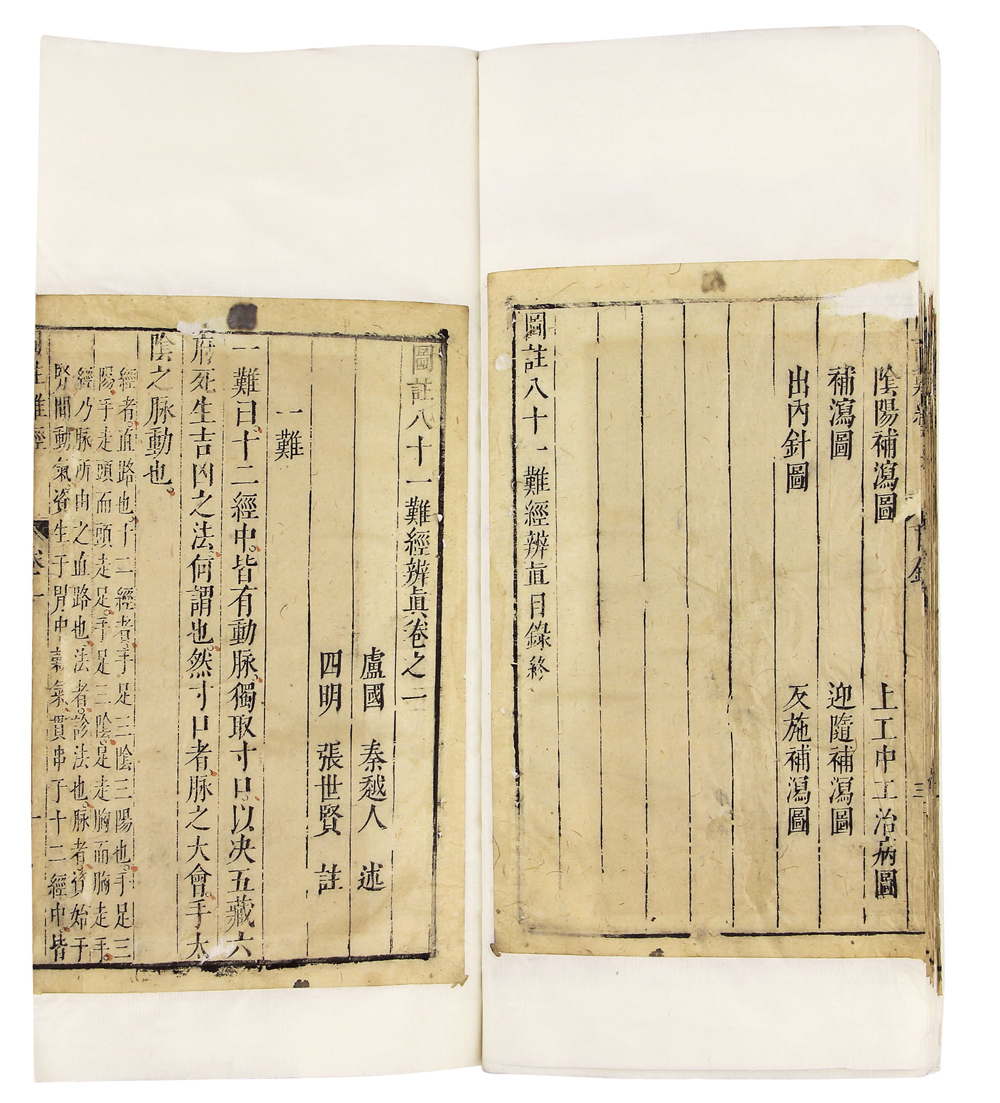 陰陽補瀉圖　上工中工治病圖
補瀉圖　迎隨補瀉圖
出內針圖　反施補瀉圖
圖註八十一難經辨眞目錄終
圖註八十一難經辨眞卷之一
盧國　秦越人　述
四明　張世賢　註
一難
一難曰。十二經中。皆有動脉。獨取寸口。以决五藏六
府死生吉凶之法。何謂也。然寸口者。脉之大會。手太
陰之脉動也。
經者。血路也。十二經者。手足三陰三陽也。手足三
陽。手走頭而頭走足。手足三陰。足走胸而胸走手。
經乃脉所由之血路也。法者。診法也。脉者。資始于
腎間動氣。資生于胃中穀氣。貫串于十二經中。皆
圖註難經　卷一　一